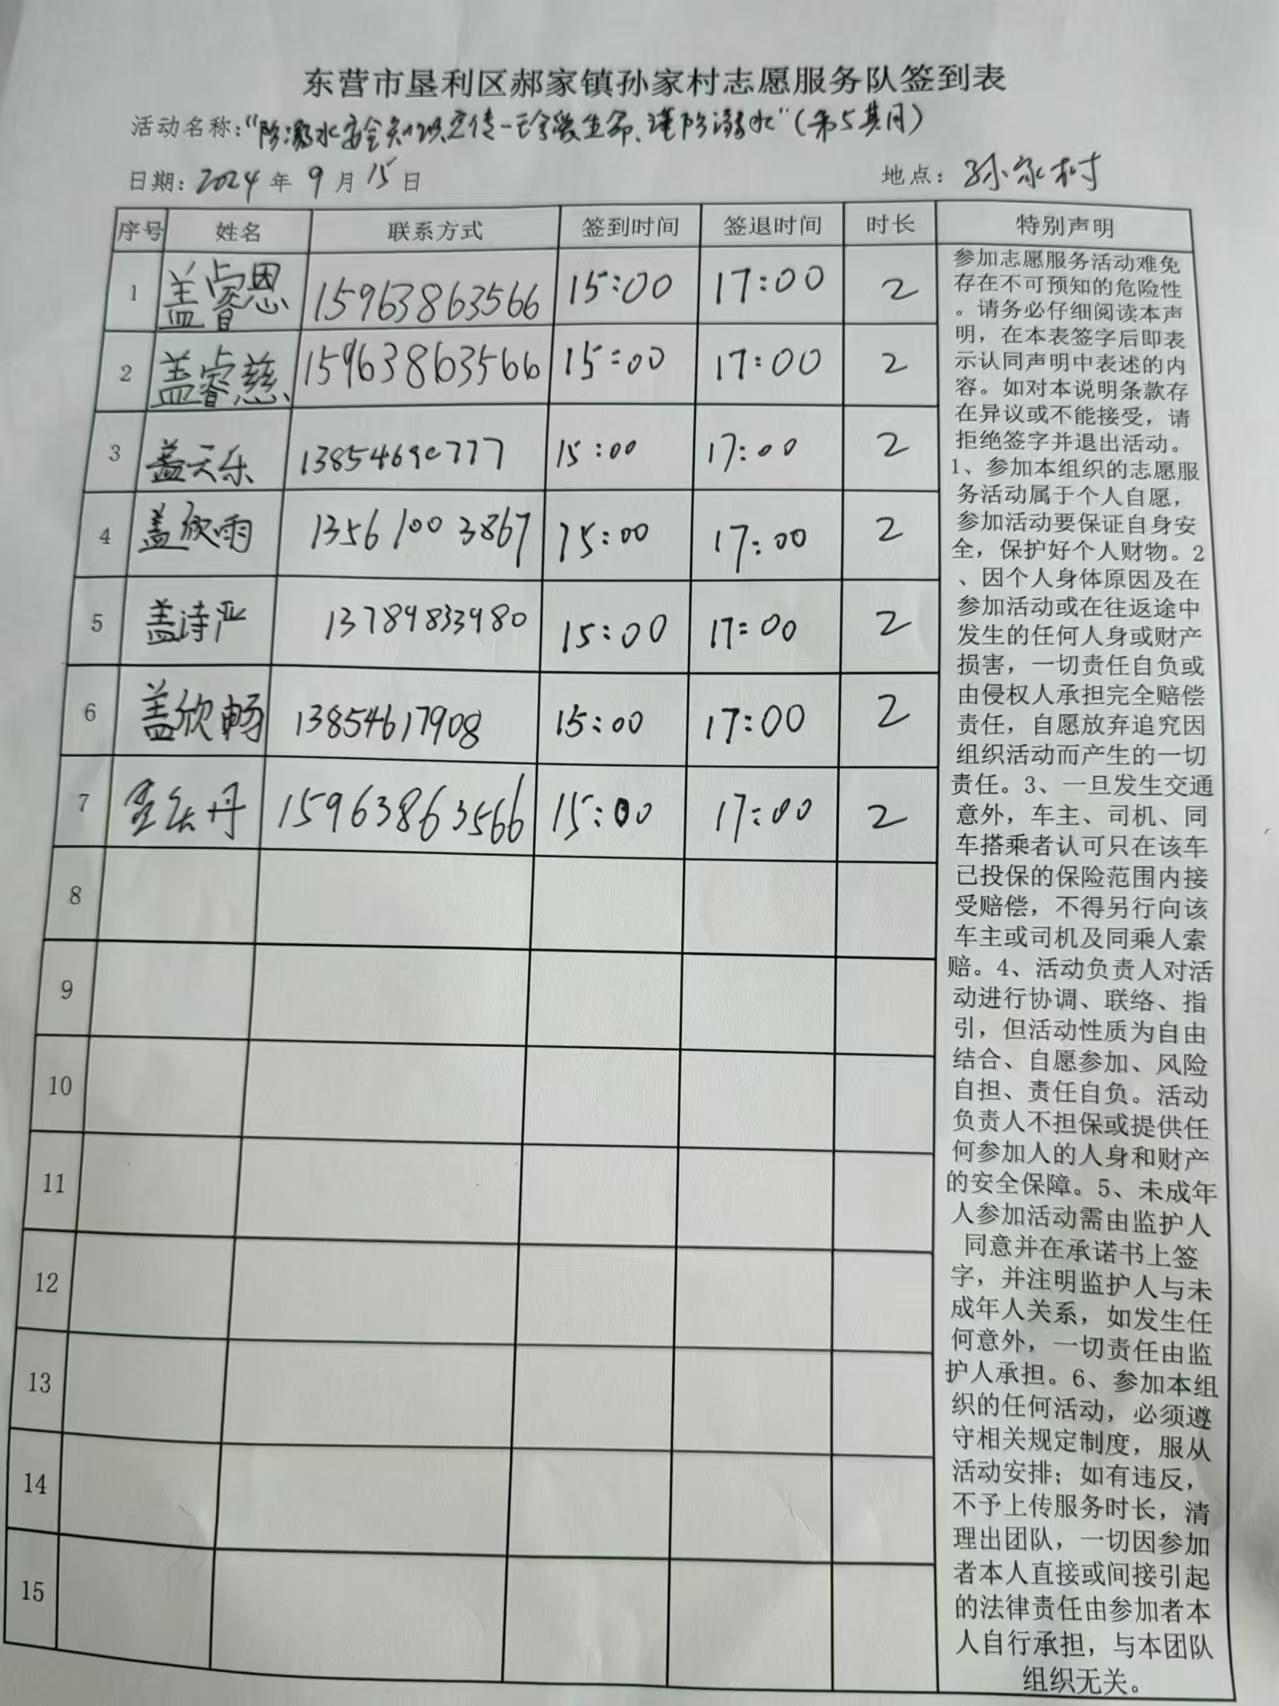 东营市垦利区郝家镇孙家村志愿服务队签到表
活动名称：“防溺水安全知识宣传—珍爱生命、谨防溺水”（第5期）
日期：2024年9月15日 地点：孙家村
序号 姓名 联系方式 签到时间 签退时间 时长 特别声明
1 盖睿恩 15963863566 15:00 17:00 2
2 盖睿慈 15963863566 15:00 17:00 2
3 盖天乐 13854690777 15:00 17:00 2
4 盖欣雨 13561003867 15:00 17:00 2
5 盖诗严 13789833980 15:00 17:00 2
6 盖欣畅 13854617908 15:00 17:00 2
7 丹 15963863566 15:00 17:00 2
8
9
10
11
12
13
14
15
参加志愿服务活动难免
存在不可预知的危险性
。请务必仔细阅读本声
明，在本表签字后即表
示认同声明中表述的内
容。如对本说明条款存
在异议或不能接受，请
拒绝签字并退出活动。
1、参加本组织的志愿服
务活动属于个人自愿，
参加活动要保证自身安
全，保护好个人财物。2
、因个人身体原因及在
参加活动或在往返途中
发生的任何人身或财产
损害，一切责任自负或
由侵权人承担完全赔偿
责任，自愿放弃追究因
组织活动而产生的一切
责任。3、一旦发生交通
意外，车主、司机、同
车搭乘者认可只在该车
已投保的保险范围内接
受赔偿，不得另行向该
车主或司机及同乘人索
赔。4、活动负责人对活
动进行协调、联络、指
引，但活动性质为自由
结合、自愿参加、风险
自担、责任自负。活动
负责人不担保或提供任
何参加人的人身和财产
的安全保障。5、未成年
人参加活动需由监护人
同意并在承诺书上签
字，并注明监护人与未
成年人关系，如发生任
何意外，一切责任由监
护人承担。6、参加本组
织的任何活动，必须遵
守相关规定制度，服从
活动安排；如有违反，
不予上传服务时长，清
理出团队，一切因参加
者本人直接或间接引起
的法律责任由参加者本
人自行承担，与本团队
组织无关。